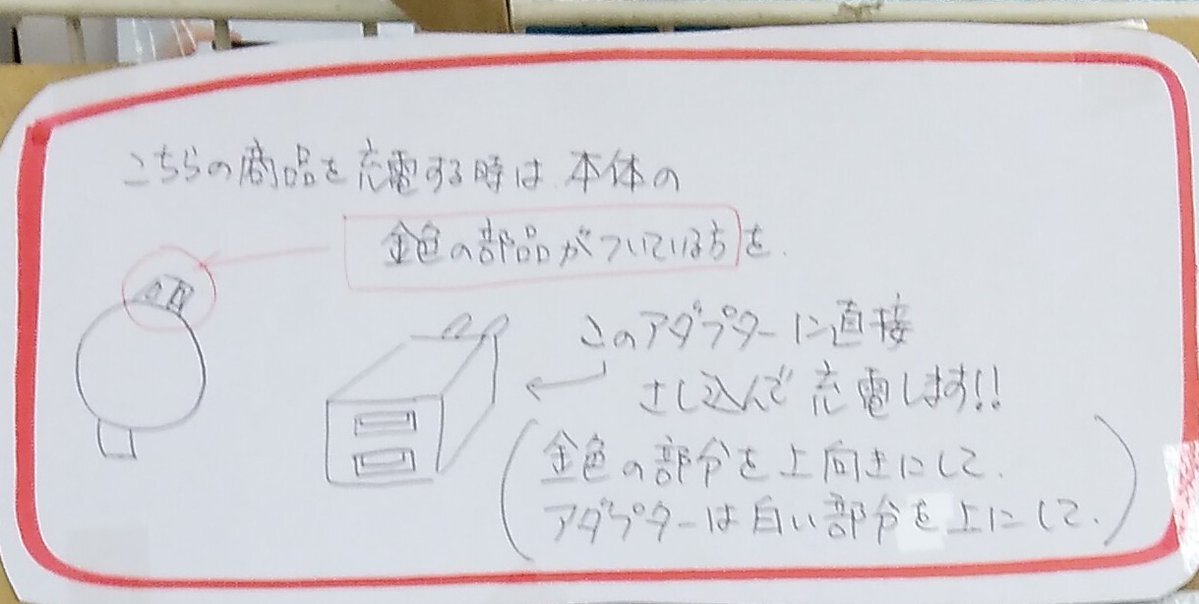 こちらの商品を充電する時は、本体の
金色の部品がついている方を、
このアダプターに直接
さし込んで充電します!!
(金色の部分を上向きにして、
アダプターは白い部分を上にして、)